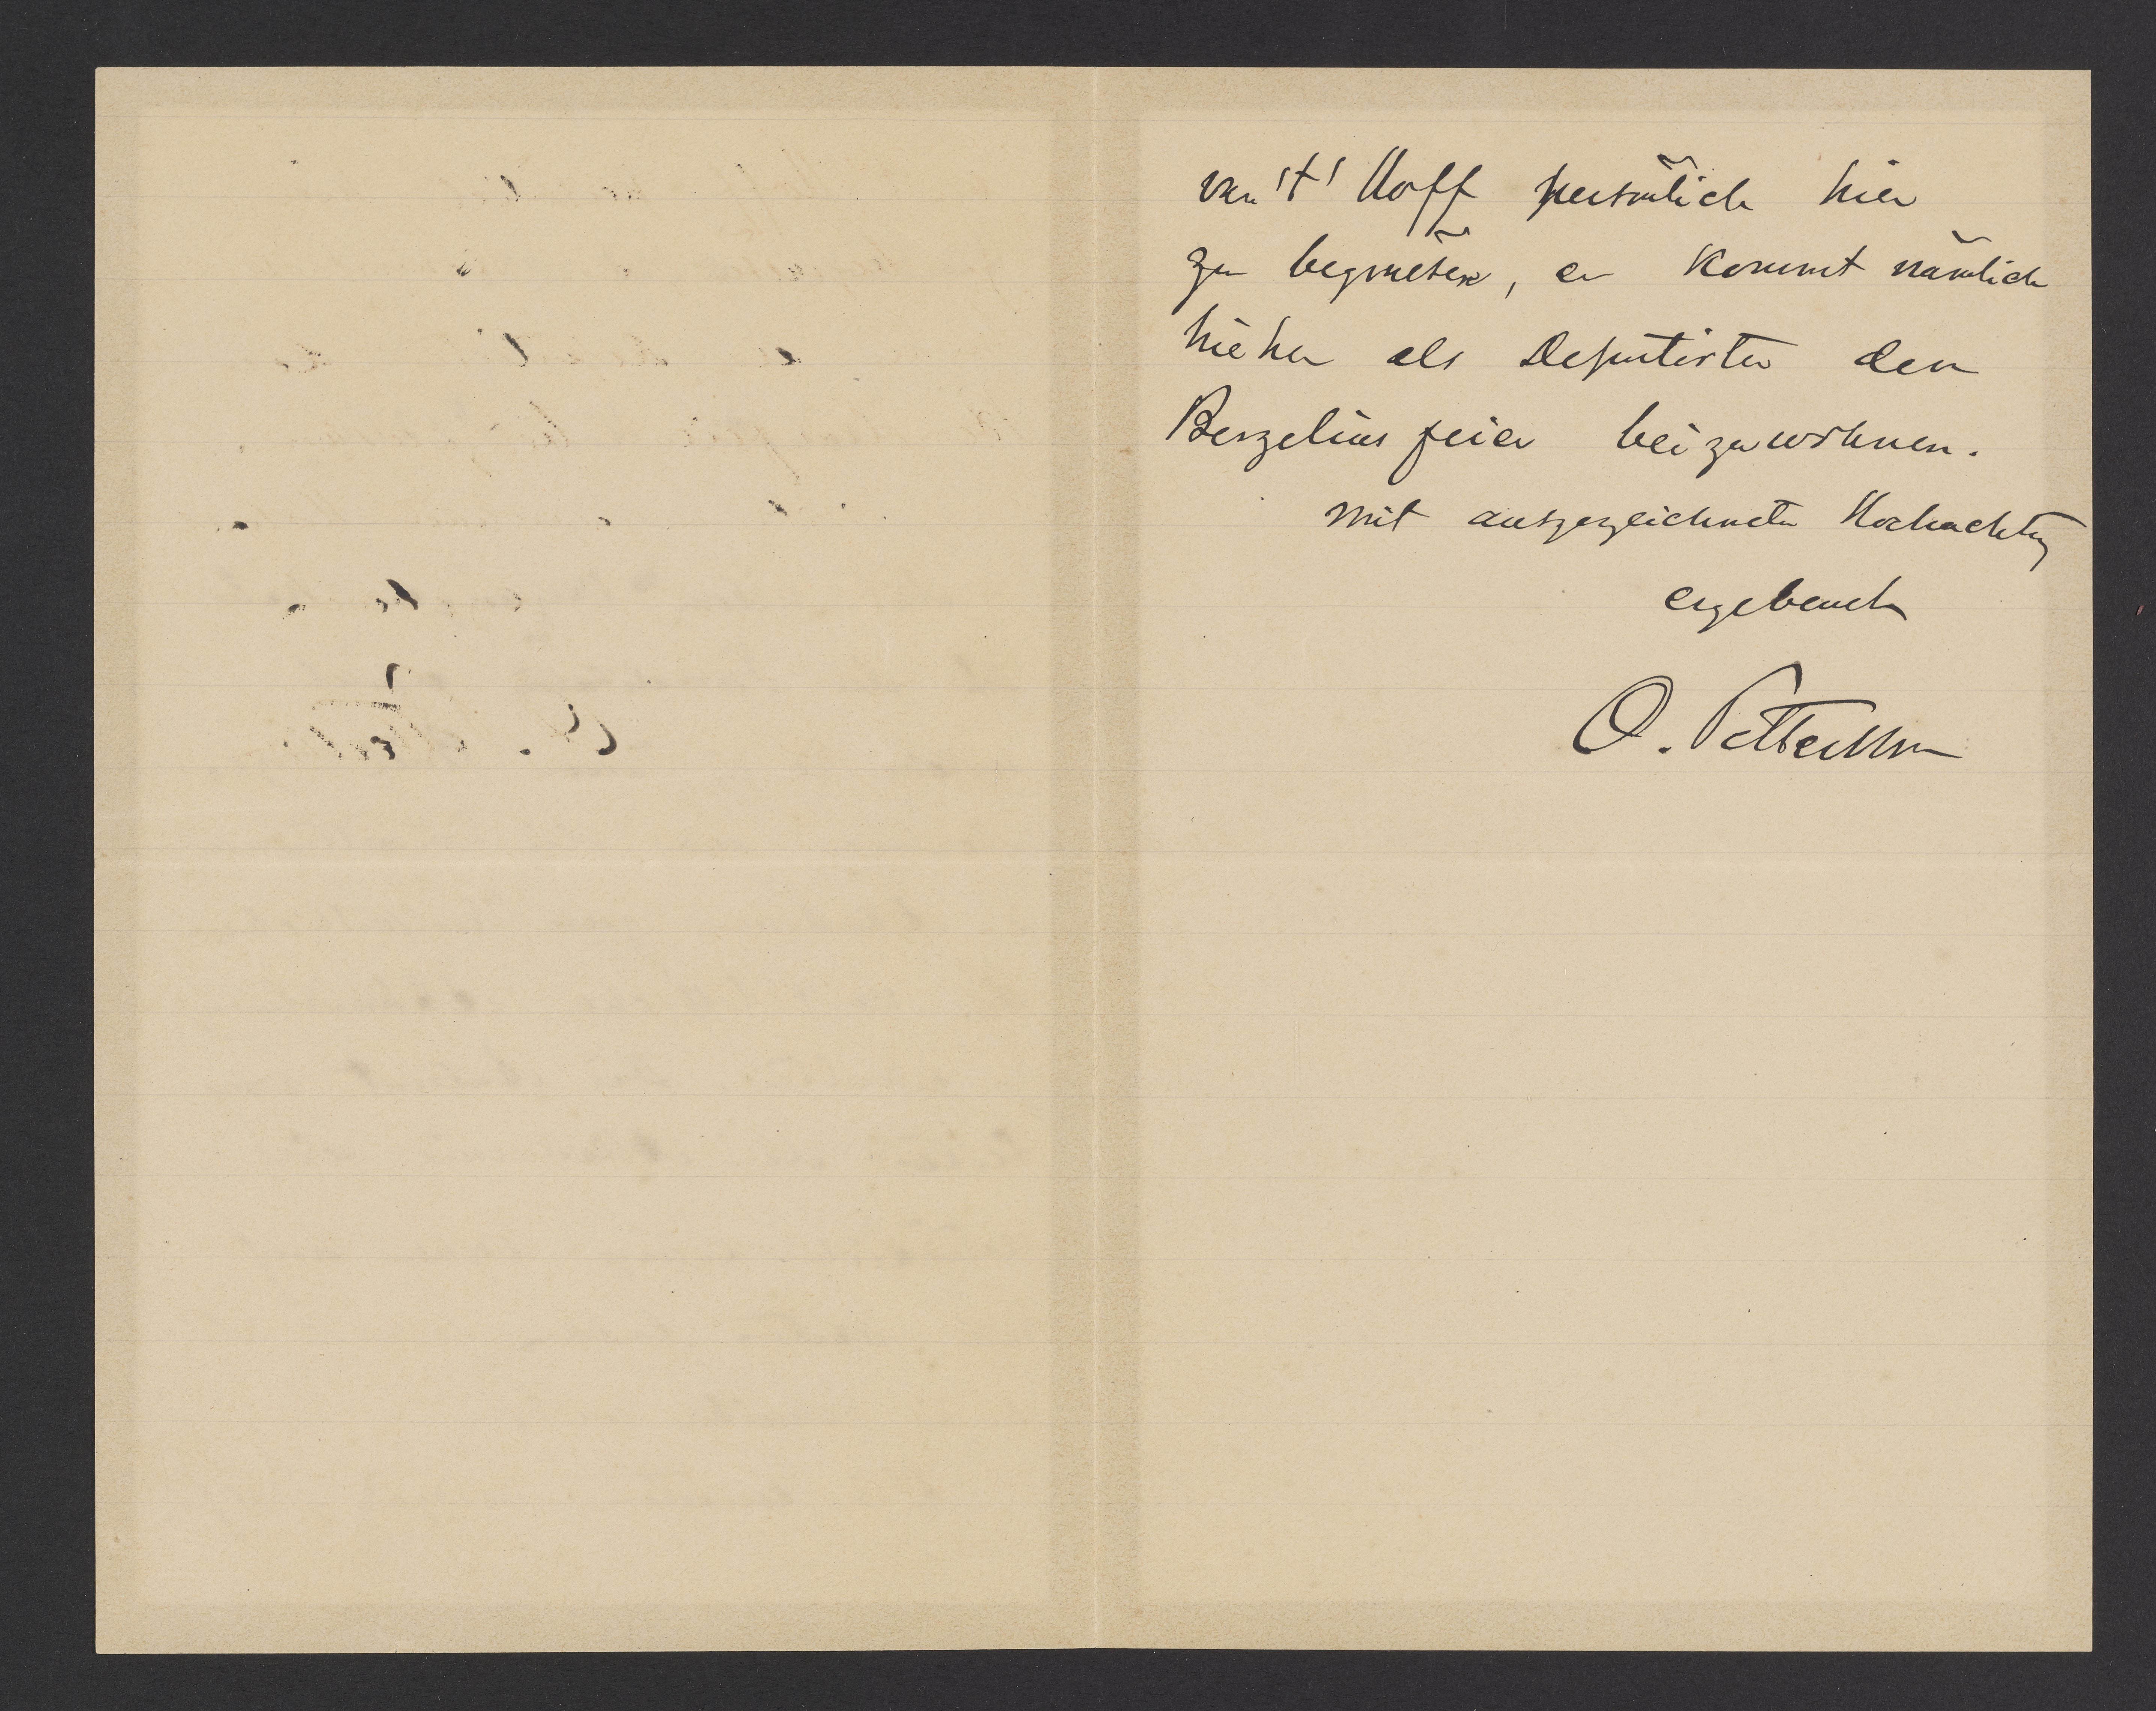 van 't' Hoff persönlich hier
zu begrüßen, er kommt nämlich
hieher als Deputirter der
Berzeliusfeier beizuwohnen.
Mit ausgezeichneter Hochachtung
ergebenst
O. Pettersson